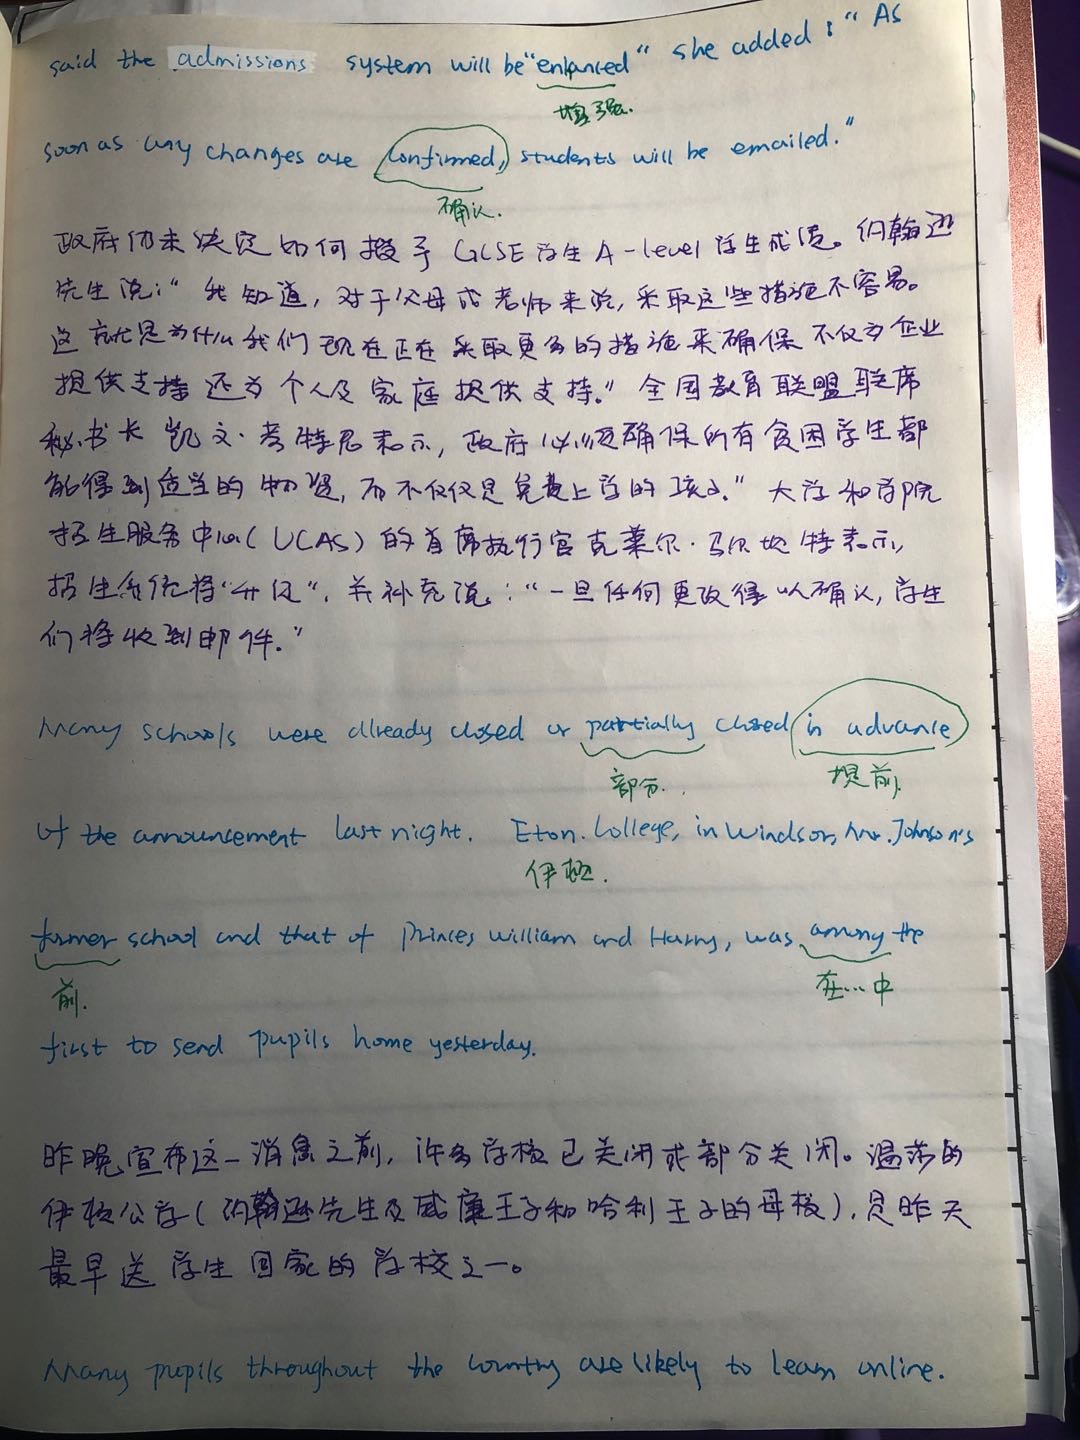 said the admissions system will be "enhanced" she added: "As
增强.
soon as any changes are confirmed, students will be emailed."
确认.
政府仍未决定如何授予GCSE学生A-level学生成绩。约翰逊
先生说:"我知道,对于父母或老师来说,采取这些措施不容易。
这就是为什么我们现在正在采取更多的措施来确保不仅为企业
提供支持还为个人及家庭提供支持。"全国教育联盟联席
秘书长凯文·考特尼表示,政府必须确保所有贫困学生都
能得到适当的物资,而不仅仅是免费上学的孩子。"大学和学院
招生服务中心(UCAS)的首席执行官克莱尔·马尔坎特表示,
招生系统将"升级",并补充说:"一旦任何更改得以确认,学生
们将收到邮件。"
Many schools were already closed or partially closed in advance
部分. 提前.
of the announcement last night. Eton College, in Windsor, Mr. Johnson's
伊顿.
former school and that of Princes William and Harry, was among the
前. 在…中
first to send pupils home yesterday.
昨晚宣布这一消息之前,许多学校已关闭或部分关闭。温莎的
伊顿公学(约翰逊先生及威廉王子和哈利王子的母校),是昨天
最早送学生回家的学校之一。
Many pupils throughout the country are likely to learn online.